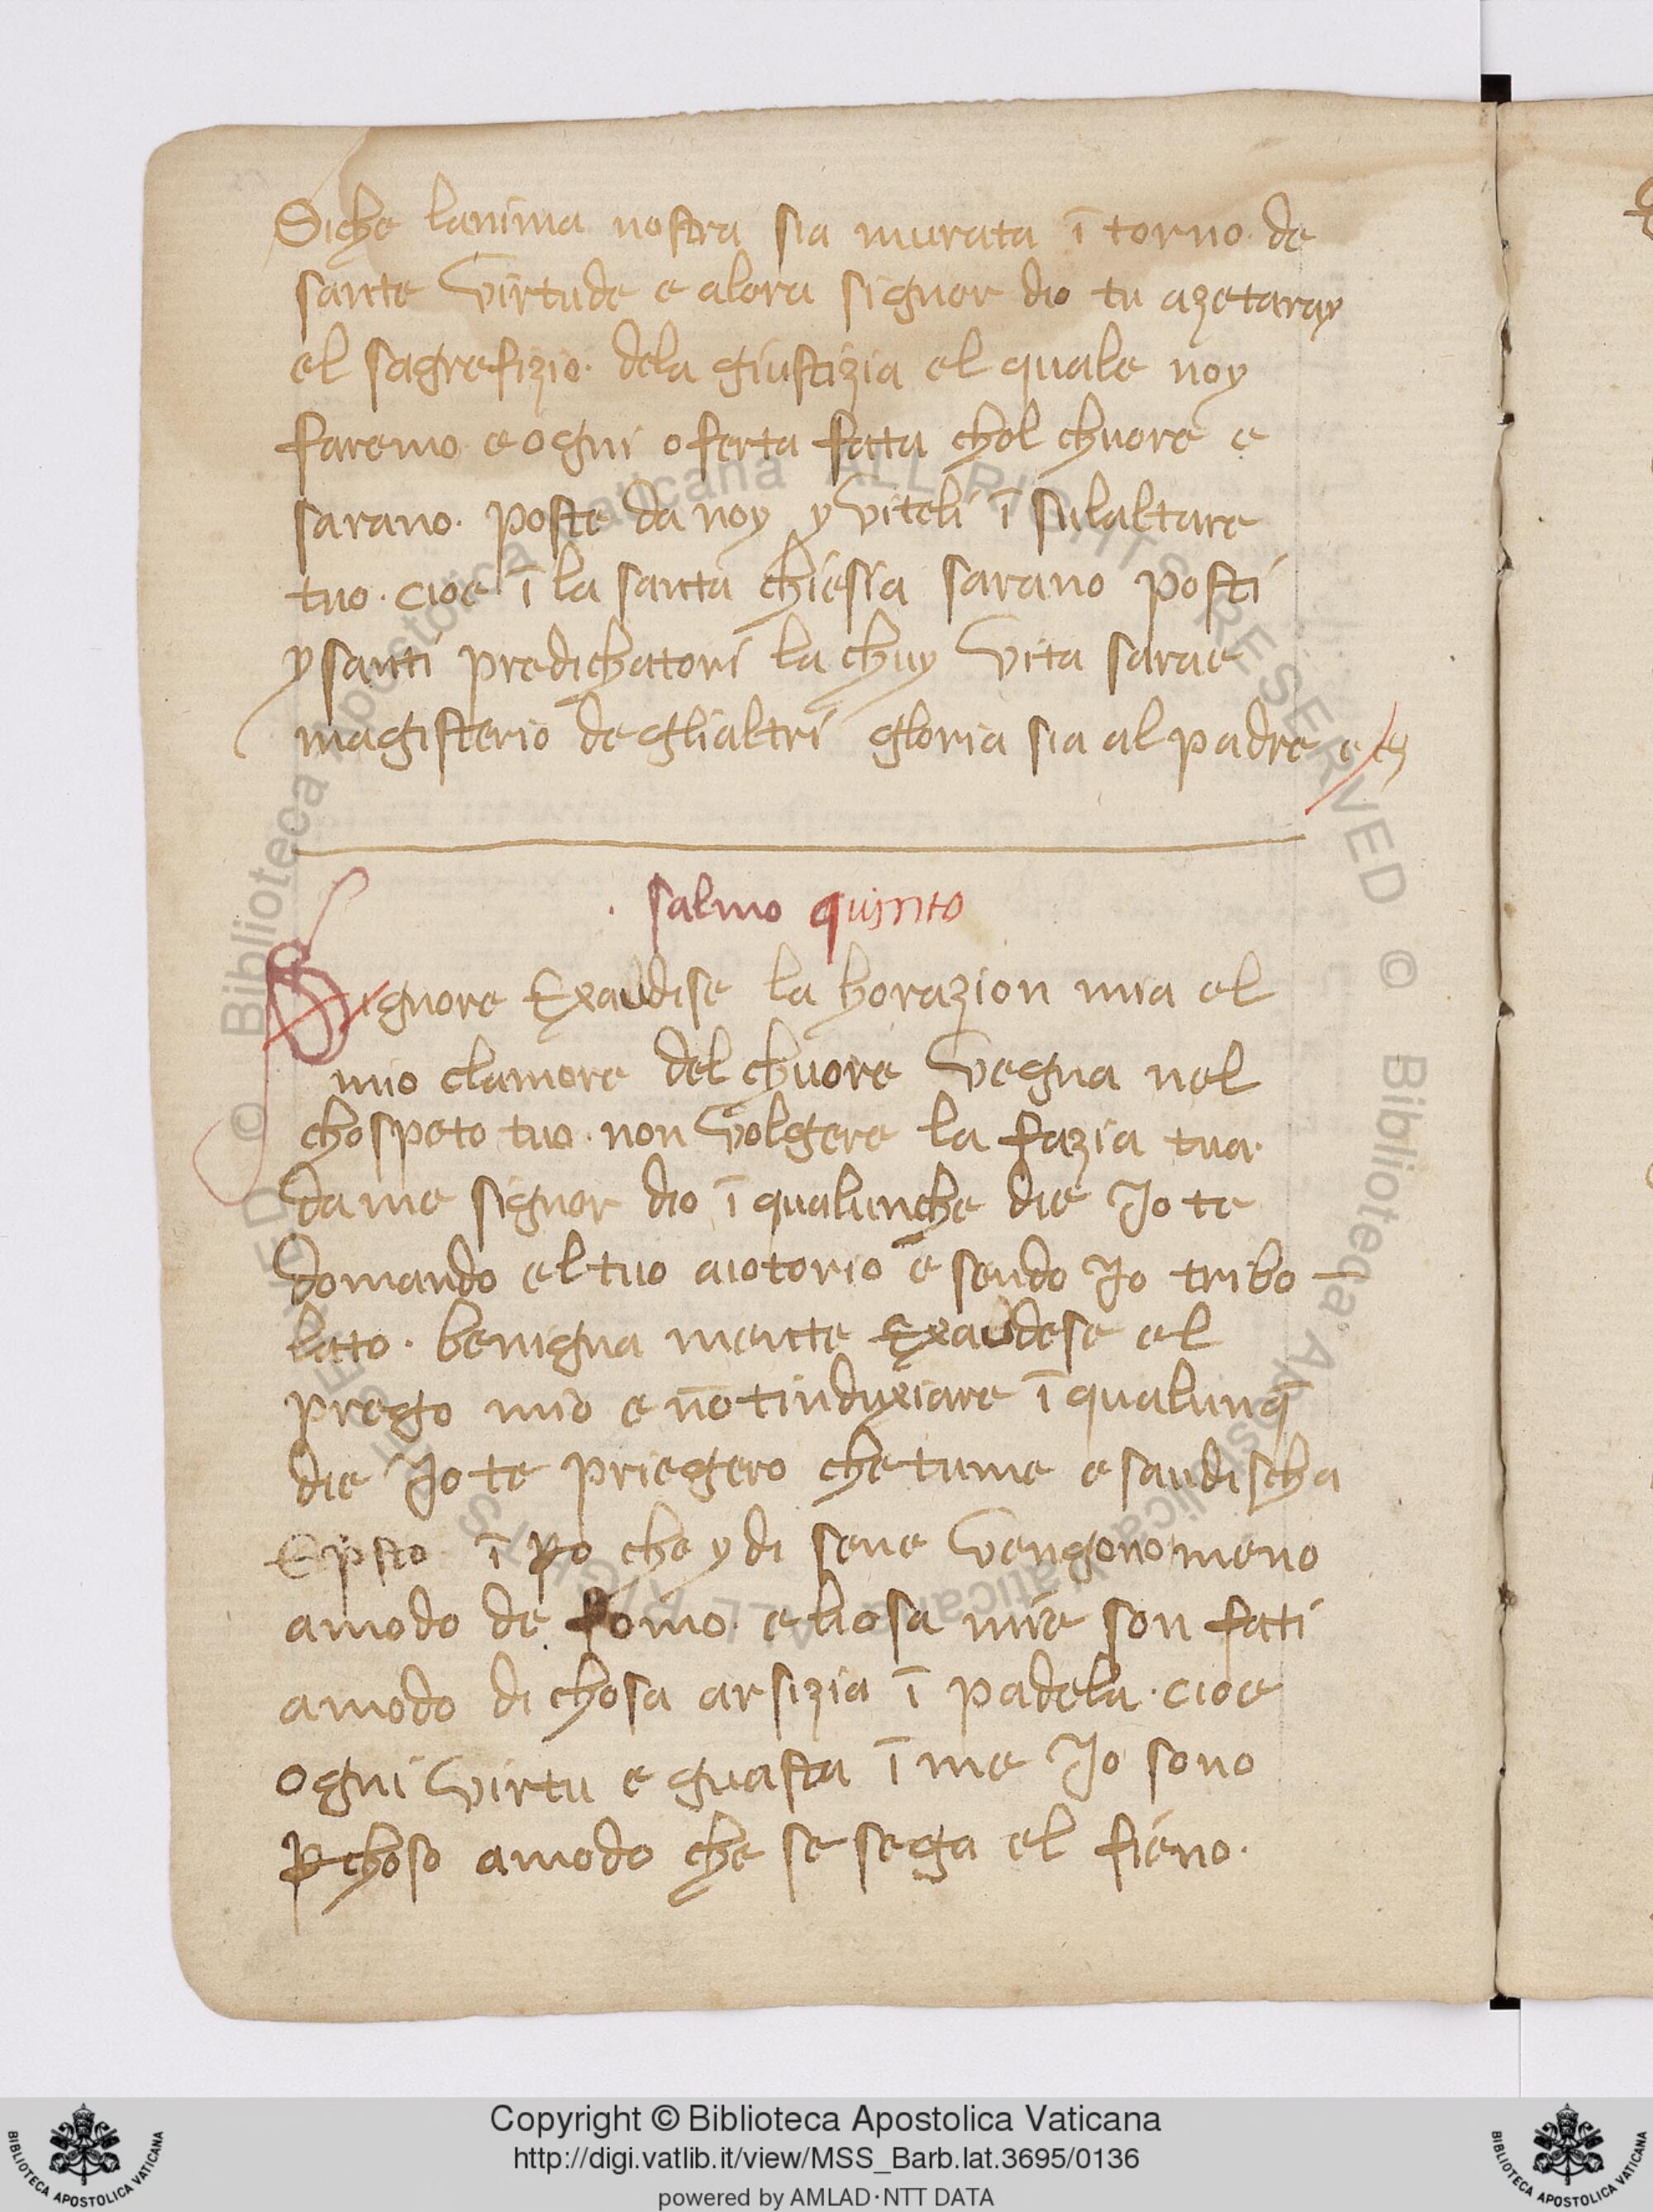 Siche lanima nostra sia murata ī torno · de
sante virtude e alora signor dio tu azetaray
el sagrefizio · dela giustizia el quale noy
faremo e ogni oferta fata chol chuore e
sarano · poste da noy y viteli ī sulaltare
tuo · cioe ī la santa chiesia sarano posti
y santi predichatori la chuy vita sarae
magisterio de glialtri gloria sia al padre e cͣ
· salmo quinto
Signore Exaudise la horazion mia el
mio clamore del chuore vegna nel
chospeto tuo · non volgere la fazia tua ·
da me signor dio ī qualunche die Jo te
domando el tuo aiotorio e sendo Jo tribo —
lato · benigna mente Exaudese el
prego mio e nō tinduxiare ī qualunq̄
die Jo te priegero che tume esaudischa
E p̱sto ī p̱o che y di sene vengono meno
amodo de fomo · e l'iosa mie son fati
amodo di chosa arsizia ī padela · cioe
ogni virtu e guasta ī me Jo sono
p̱choso amodo che se sega el fieno ·
© Biblioteca Apostolica Vaticana ALL RIGHTS RESERVED © Biblioteca Apostolica Vaticana ALL RIGHTS RESERVED
BIBLIOTECA APOSTOLICA VATICANA
Copyright © Biblioteca Apostolica Vaticana
http://digi.vatlib.it/view/MSS_Barb.lat.3695/0136
powered by AMLAD·NTT DATA
BIBLIOTECA APOSTOLICA VATICANA